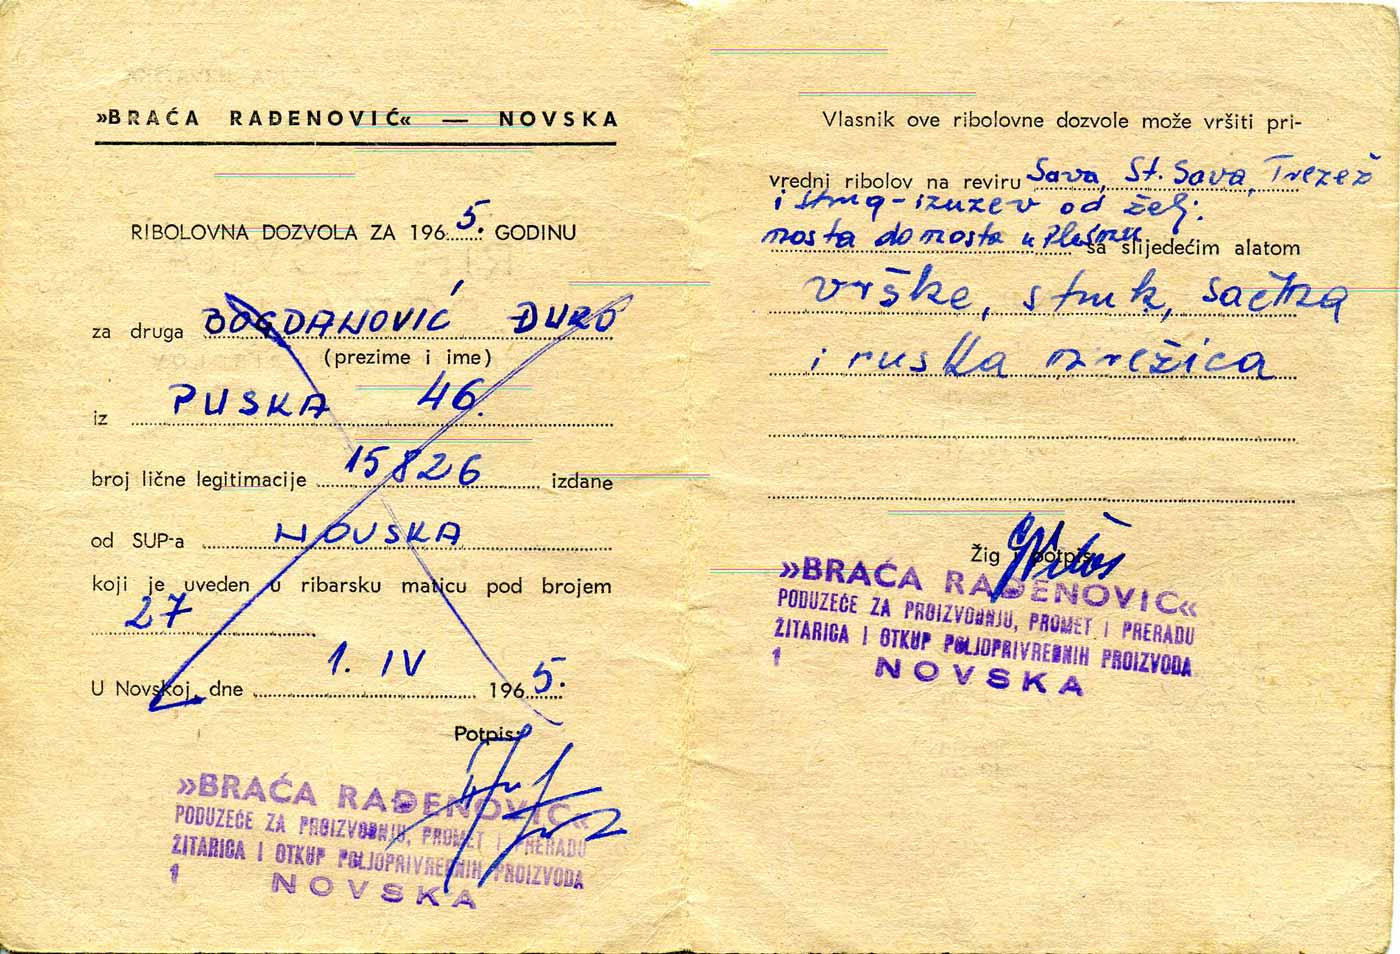 »BRAĆA RAĐENOVIĆ« — NOVSKA
RIBOLOVNA DOZVOLA ZA 1965. GODINU
za druga BOGDANOVIĆ ĐURO
(prezime i ime)
iz PUSKA 46.
broj lične legitimacije 15826 izdane
od SUP-a NOVSKA
koji je uveden u ribarsku maticu pod brojem
27
U Novskoj, dne 1. IV 1965.
Potpis:
»BRAĆA RAĐENOVIĆ«
PODUZEĆE ZA PROIZVODNJU, PROMET I PRERADU
ŽITARICA I OTKUP POLJOPRIVREDNIH PROIZVODA
1 NOVSKA
Vlasnik ove ribolovne dozvole može vršiti pri-
vredni ribolov na reviru Sava, St. Sava, Trezež
i strug-izuzev od želj.
mosta do mosta u sa slijedećim alatom
vrške, struk, sačma
i ruska mrežica
Žig i potpis:
»BRAĆA RAĐENOVIĆ«
PODUZEĆE ZA PROIZVODNJU, PROMET I PRERADU
ŽITARICA I OTKUP POLJOPRIVREDNIH PROIZVODA
1 NOVSKA